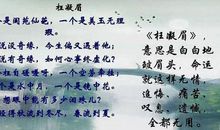 枉凝眉
是阆苑仙葩，一个是美玉无
瑕。
说没奇缘，今生偏又遇着他；
说有奇缘，如何心事终虚化？
枉自嗟呀，一个空劳牵挂；
个是水中月，一个是镜中花。
想眼中能有多少泪珠儿？
经得秋流到冬，春流到夏。
《枉凝眉》，
意思是白白地
皱眉头，命运
就这样无情，
追悔、痛苦、
叹息、遗憾，
全都无用。